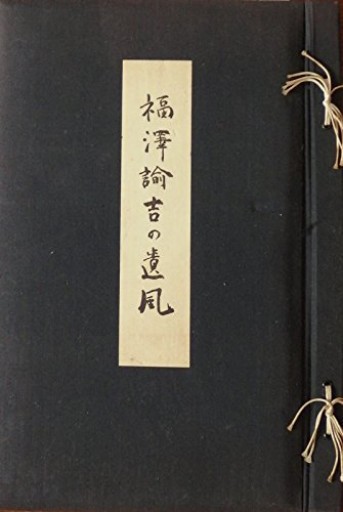 福澤諭吉の遺風